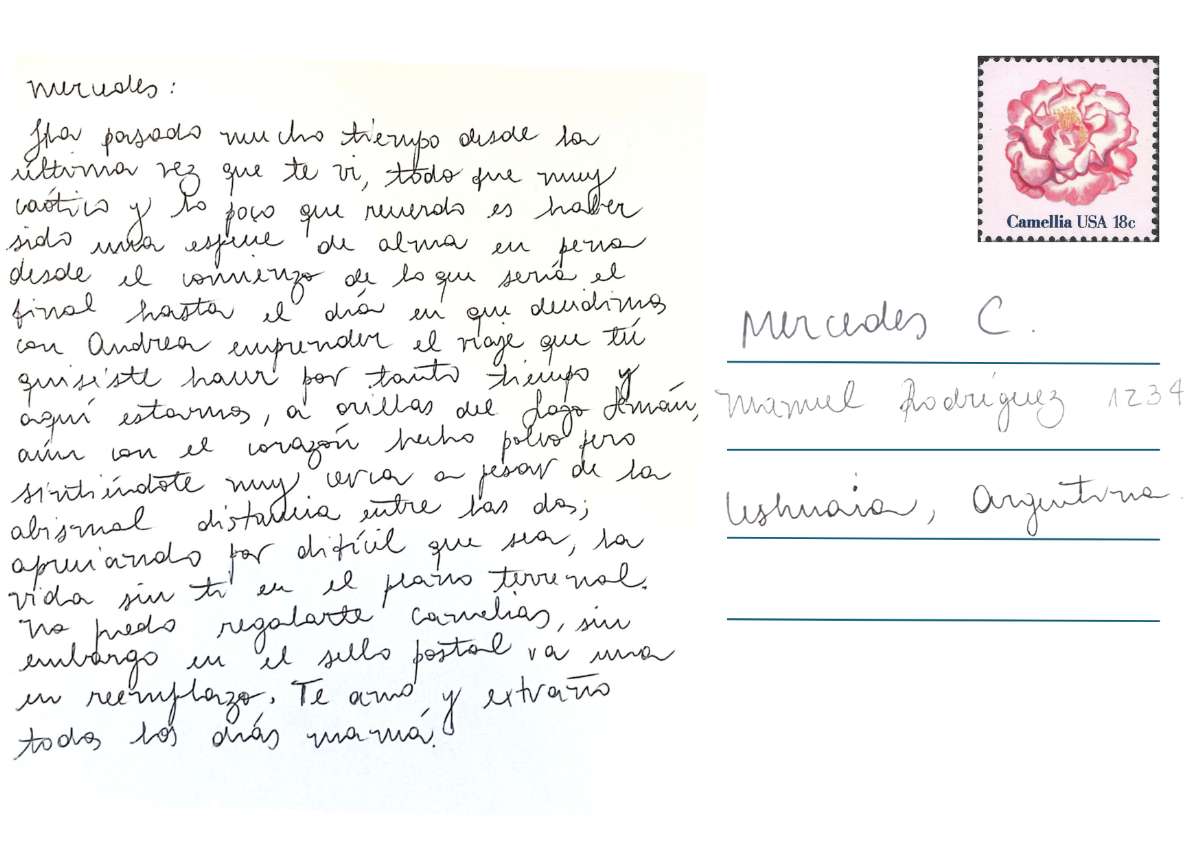 Mercedes:
Ha pasado mucho tiempo desde la
última vez que te vi, todo fue muy
caótico y lo poco que recuerdo es haber
sido una especie de alma en pena
desde el comienzo de lo que sería el
final hasta el día en que decidimos
con Andrea emprender el viaje que tú
quisiste hacer por tanto tiempo y
aquí estamos, a orillas del Lago Amán,
aún con el corazón hecho polvo pero
sintiéndote muy cerca a pesar de la
abismal distancia entre las dos;
apreciando por difícil que sea, la
vida sin ti en el plano terrenal.
No puedo regalarte camelias, sin
embargo en el sello postal va una
en reemplazo. Te amo y extraño
todos los días mamá.
Camellia USA 18c
Mercedes C.
Manuel Rodríguez 1234
Ushuaia, Argentina.